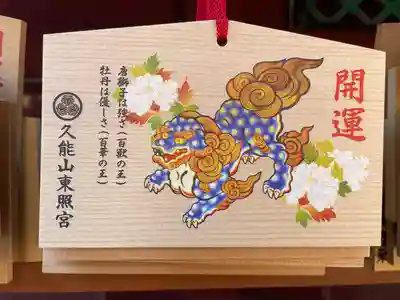 開運
唐獅子は強さ(百獣の王)
牡丹は優しさ(百華の王)
久能山東照宮